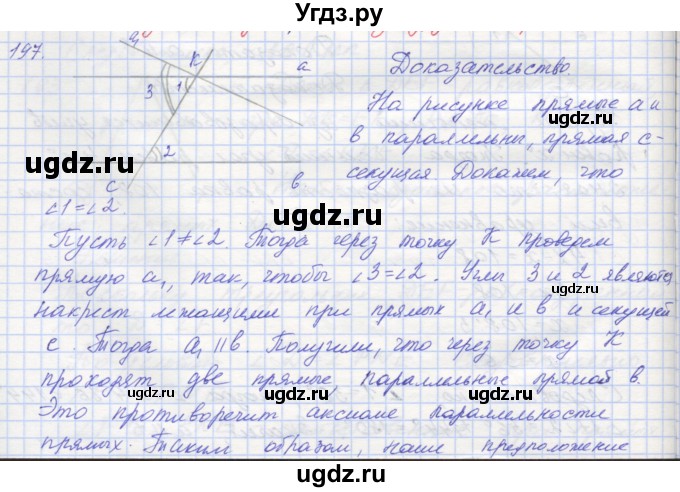 Угдз.ру
197.
a₁
K
a
3
1
2
c
в
Доказательство.
На рисунке прямые а и
в параллельны, прямая с-
секущая Докажем, что
∠1=∠2.
Пусть ∠1≠∠2. Тогда через точку К проведем
прямую а₁, так, чтобы ∠3=∠2. Углы 3 и 2 являются
накрест лежащими при прямых а₁ и в и секущей
с. Тогда а₁ || в. Получили, что через точку К
проходят две прямые, параллельные прямой в.
Это противоречит аксиоме параллельности
прямых. Таким образом, наше предположение
uгдз.ru
uгдз.ru
uгдз.ru
uгдз.ru
uгдз.ru
uгдз.ru
uгдз.ru